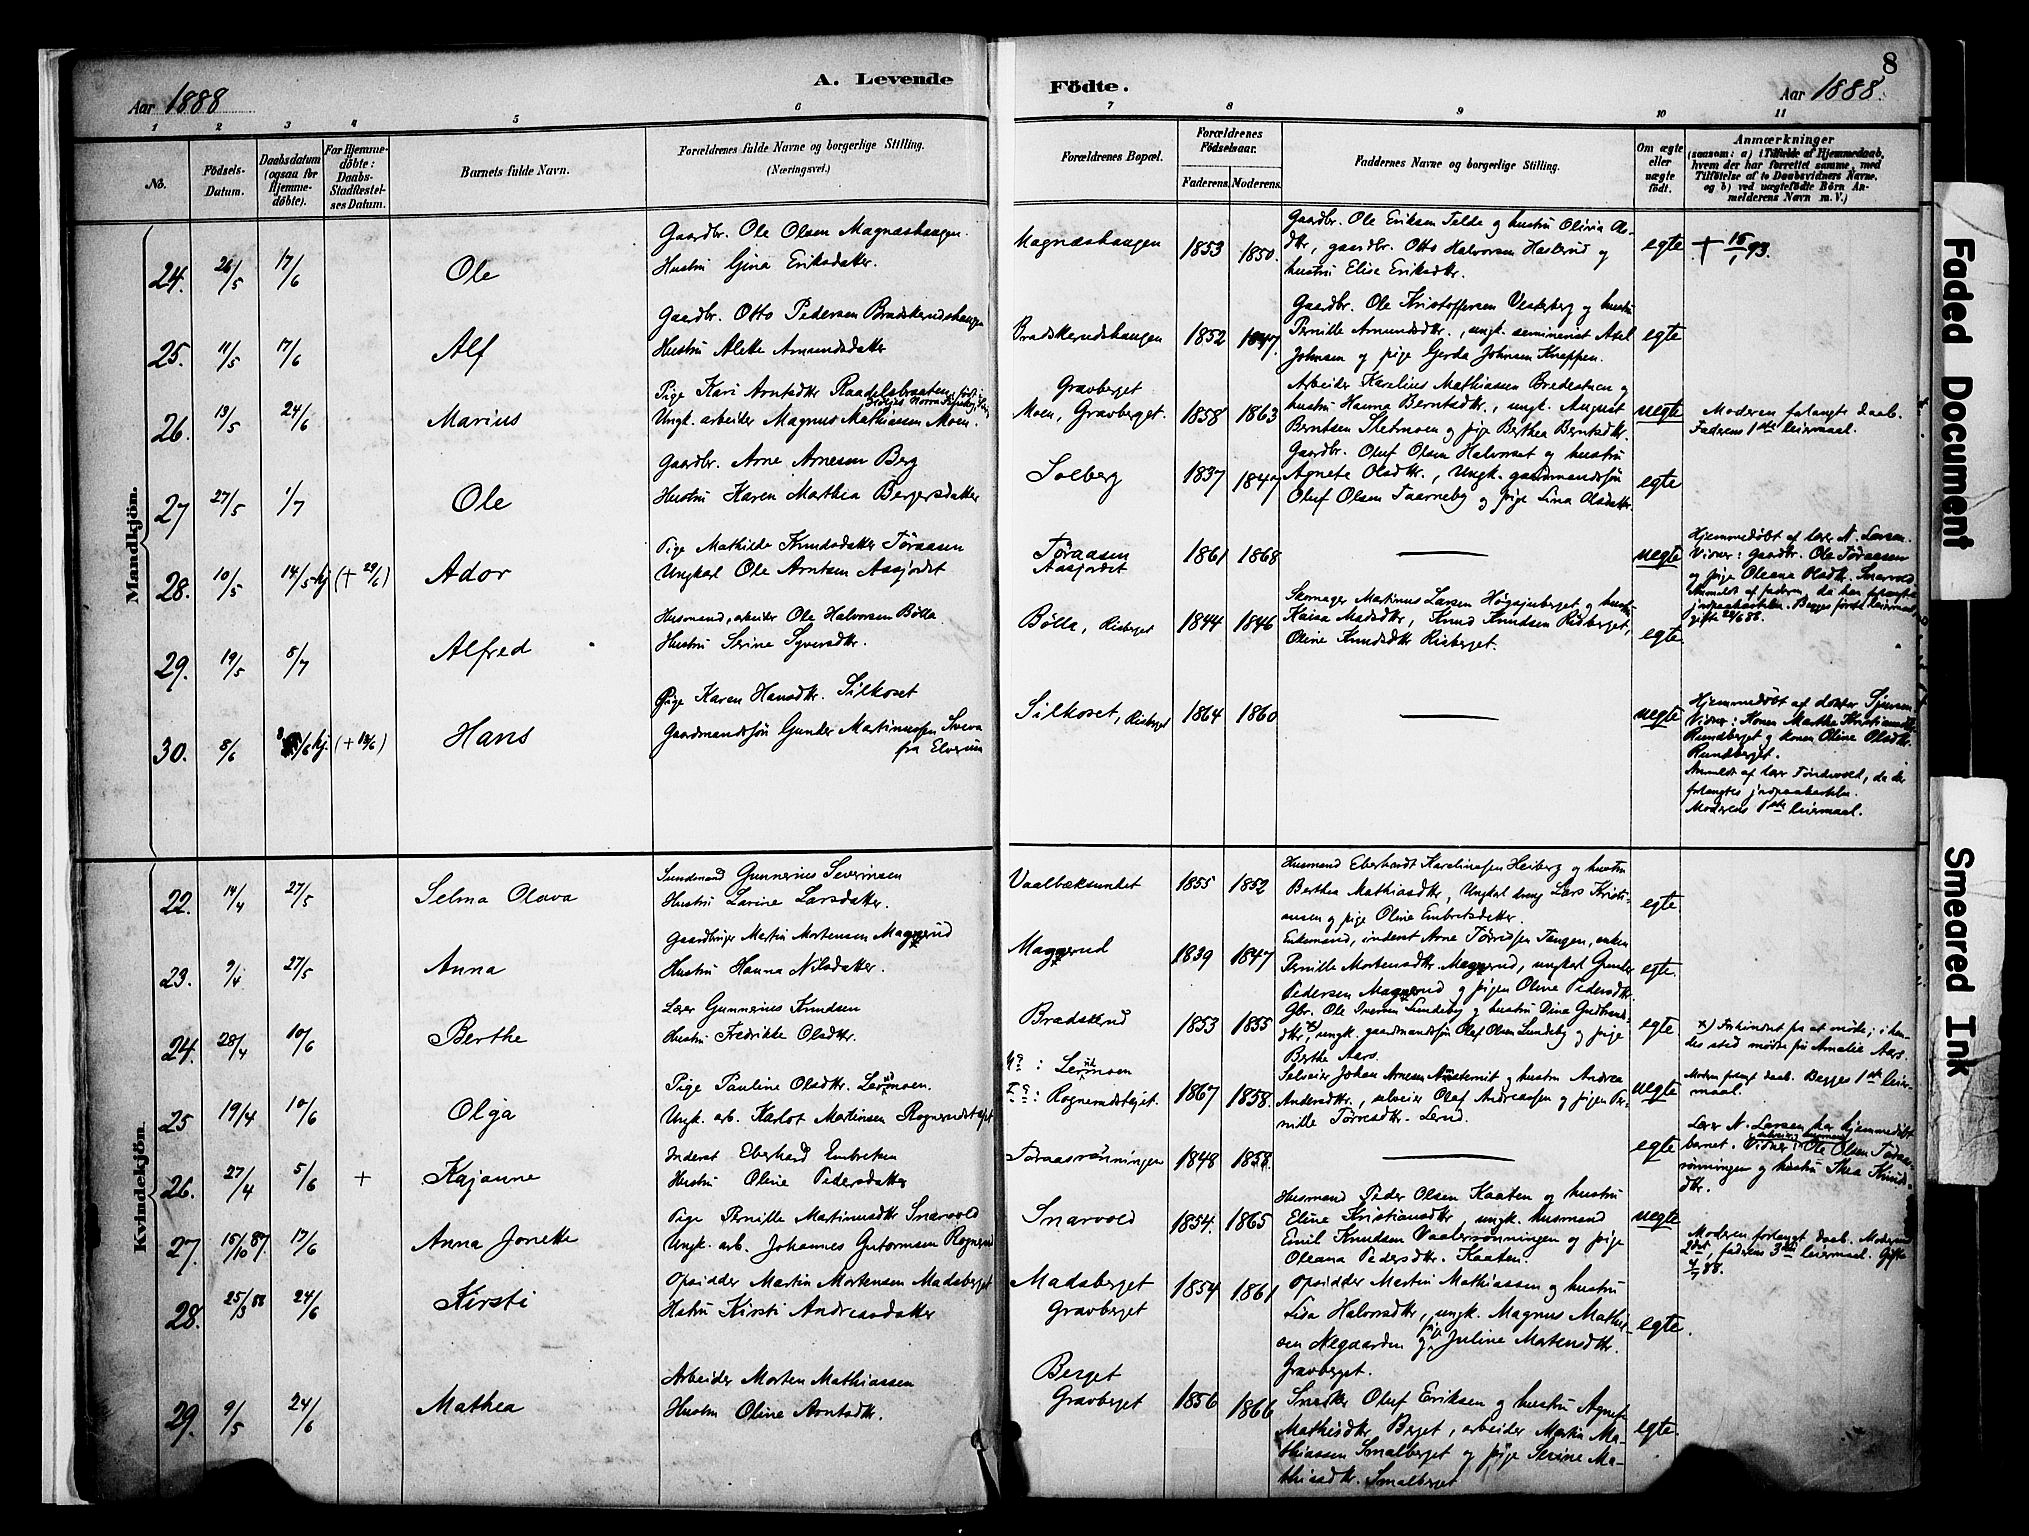 8
A. Levende Födte.
Aar 1888
Aar 1888.
1 2 3 4 5 6 7 8 9 10 11
No.
Födsels-Datum.
Daabsdatum (ogsaa for Hjemme-döbte).
For Hjemme-döbte: Daabs-Stadfæstel-ses Datum.
Barnets fulde Navn.
Forældrenes fulde Navne og borgerlige Stilling.
(Næringsvei.)
Forældrenes Bopæl.
Forældrenes Födselsaar.
Faderens. Moderens.
Faddernes Navne og borgerlige Stilling.
Om ægte eller uægte födt.
Anmærkninger
(saasom: a) i Tilfælde af Hjemmedaab,
hvem der har forrettet samme, med
Tilföielse af to Daabsvidners Navne,
og b) ved uægtefödte Börn An-
melderens Navn m. V.)
Mandkjön.
24. 26/5 17/6 Ole
Gaardbr. Ole Olsen Magnæshaugen.
Hustru Gina Eriksdatter.
Magnæshaugen 1853 1850.
Gaardbr. Ole Eriksen Telde og hustru Olivia As-
dtr, gaardbr. Otto Halvorsen Hasbrud og
hustru Elise Eriksdtr.
egte + 15/1 93.
25. 11/5 17/6 Alf
Gaardbr. Otto Pedersen Bradskerudshaugen
Hustru Alette Amundsdatter
Bradskerudshaugen 1852 1847.
Gaardbr. Ole Kristoffersen Vesteberg og hustru
Pernille Amundsdtr., ungk. seminarist Axel
Johnsen og pige Gerda Johnsen Kneppen.
egte
26. 13/5 24/6 Marius
Pige Kari Arntsdtr Raadelsbraaten
Ungk. arbeider Magnus Mathiassen Moen.
Gravberget
Moen, Gravberget. 1858 1863
Arbeider Karelius Mathiassen Bredesmoen og
hustru Hanna Berntsdtr., ungk. August
Berntsen Sletmoen og pige Berthea Berntsdtr.
uegte
Moderen forlangte daab.
Faderens 1ste leiermaal.
27 27/5 1/7 Ole
Gaardbr. Arne Arnesen Berg
Hustru Karen Marthea Bergersdatter
Solberg 1837 1847
Gaardbr. Oluf Olsen Halvorset og hustru
Agnete Olsdtr., Ungk. gaardmandssøn
Oluf Olsen Taarneby og pige Lina Olsdatter
egte
28. 10/5 14/5 hj (+ 29/6) Ador
Pige Mathilde Knudsdatter Töraasen
Ungkarl Ole Arntsen Aasjordet
Töraasen
Aasjordet 1861 1868 —
uegte
Hjemmedøbt af lærer N. Larsen
Vidner: gaardbr. Ole Töraasen
og pige Oleane Olsdtr. Snarvold.
Anmeldt af faderen, da han forlangte
jordpaakastelse. Begges første leiermaal
gifte 24/6 88.
29. 19/5 8/7 Alfred
Husmand, arbeider Ole Halvorsen Bölla.
Hustru Serine Syversdtr.
Bölla, Risberget 1844 1846
Skomager Martinus Larsen Høgsjøberget og hustru
Kaisa Madsdtr, Knud Knudsen Risberget,
Oline Knudsdtr Risberget.
egte
30. 8/6 /6 hj. (+ 13/6) Hans
Pige Karen Hansdtr. Silkoset
Gaardmandssøn Gunder Martinussen Sneva
fra Elverum
Silkoset, Risberget 1864 1860 —
uegte
Hjemmedøbt af doktor Sjursen
Vidner: Konen Marthe Kristiansdtr
Rundberget og konen Oline Olsdtr.
Rundberget.
Anmeldt af lærer Töndervold, da der
forlangtes jordpaakastelse.
Moderens 1ste leiermaal.
Kvindekjön.
22. 14/4 27/5 Selma Olava
Sundmand Gunnerius Severinsen
Hustru Larine Larsdatter.
Vaalbæksundet 1855 1852
Husmand Eberhardt Karelinssen Heiberg og hustru
Berthea Mathiasdtr, Ungkarl dreng Lars Kristi-
ansen og pige Oline Embretsdatter.
egte.
23. 9/4 27/5 Anna
Gaardbruger Martin Mortensen Maggerud
Hustru Hanna Nilsdatter.
Maggerud 1839 1847
Enkemand, inderst Arne Tóresen Tangen, enken
Pernille Mortensdtr Maggerud, ungkarl Gunder
Pedersen Maggerud og pigen Oline Pedersdtr.
egte.
24. 28/4 10/6 Berthe
Lærer Gunnerius Knudsen
Hustru Fredrikke Olsdtr.
Bradskerud 1853 1855
Gbr. Ole Iversen Lundeby og hustru Dina Gudbrands-
dtr x), ungk. gaardmandssøn Olaf Olsen Lundeby og pige
Berthe Aars.
egte
x) Forhindret fra at møde; i hen-
des sted mødte frk Amalie Aars.
25 19/4 10/6 Olga
Pige Pauline Olsdtr. Lerudmoen.
Ungk. arb. Karlot Martinsen Rognerudstøjet
M: Lerudmoen
F: Rognerudstøjet. 1867 1858.
Selveier Johan Arnesen og hustru Andrea
Andersdtr., selveier Olaf Andreassen og pigen Per-
nille Töresdtr. Lerud.
uegte
Moderen forlangt daab. Begges 1ste leier-
maal.
26. 27/4 5/6 + Kajanne
Inderst Eberhard Embretsen
Hustru Oline Pedersdatter
Töraasrønningen 1848 1858. —
egte
Lærer N. Larsen har hjemmedøbt
barnet. Vidner: Ole Olsen Töraas-
rønningen og hustru Thea Knuds-
dtr.
27. 15/10 87. 17/6 Anna Jonette
Pige Pernille Martinusdtr Snarvold
Ungk. arb. Johannes Gutormsen Rognerud
Snarvold 1854. 1865
Husmand Peder Olsen Kaaten og hustru
Eline Kristiansdtr ungk. husmand
Emil Knudsen Vaalerrønningen og pige
Oleana Pedersdtr. Kaaten.
uegte
Moderen forlangt daab. Moderens
2det, faderens 3die leiermaal. Gifte
4/7 88.
28. 25/3 88 24/6 Kirsti
Opsidder Martin Mortensen Madsberget
Hustru Kirsti Andreasdatter
Madsberget
Gravberget 1854 1861
Opsidder Martin Mathiassen og hustru
Lisa Halvorsdtr, ungk. Magnus Mathis-
sen Nygaarden og pige Juline Mortensdtr.
Gravberget.
egte.
29. 9/5 24/6 Mathea
Arbeider Morten Mathiassen
Hustru Oline Arntsdtr.
Berget
Gravberget 1856 1866
Snedker Oluf Eriksen og hustru Agnete
Mathisdtr Berget, arbeider Martin Ma-
thiassen Smalberget og pige Serine Ma-
thisdtr. Smalberget
egte.
Faded Document
Smeared Ink